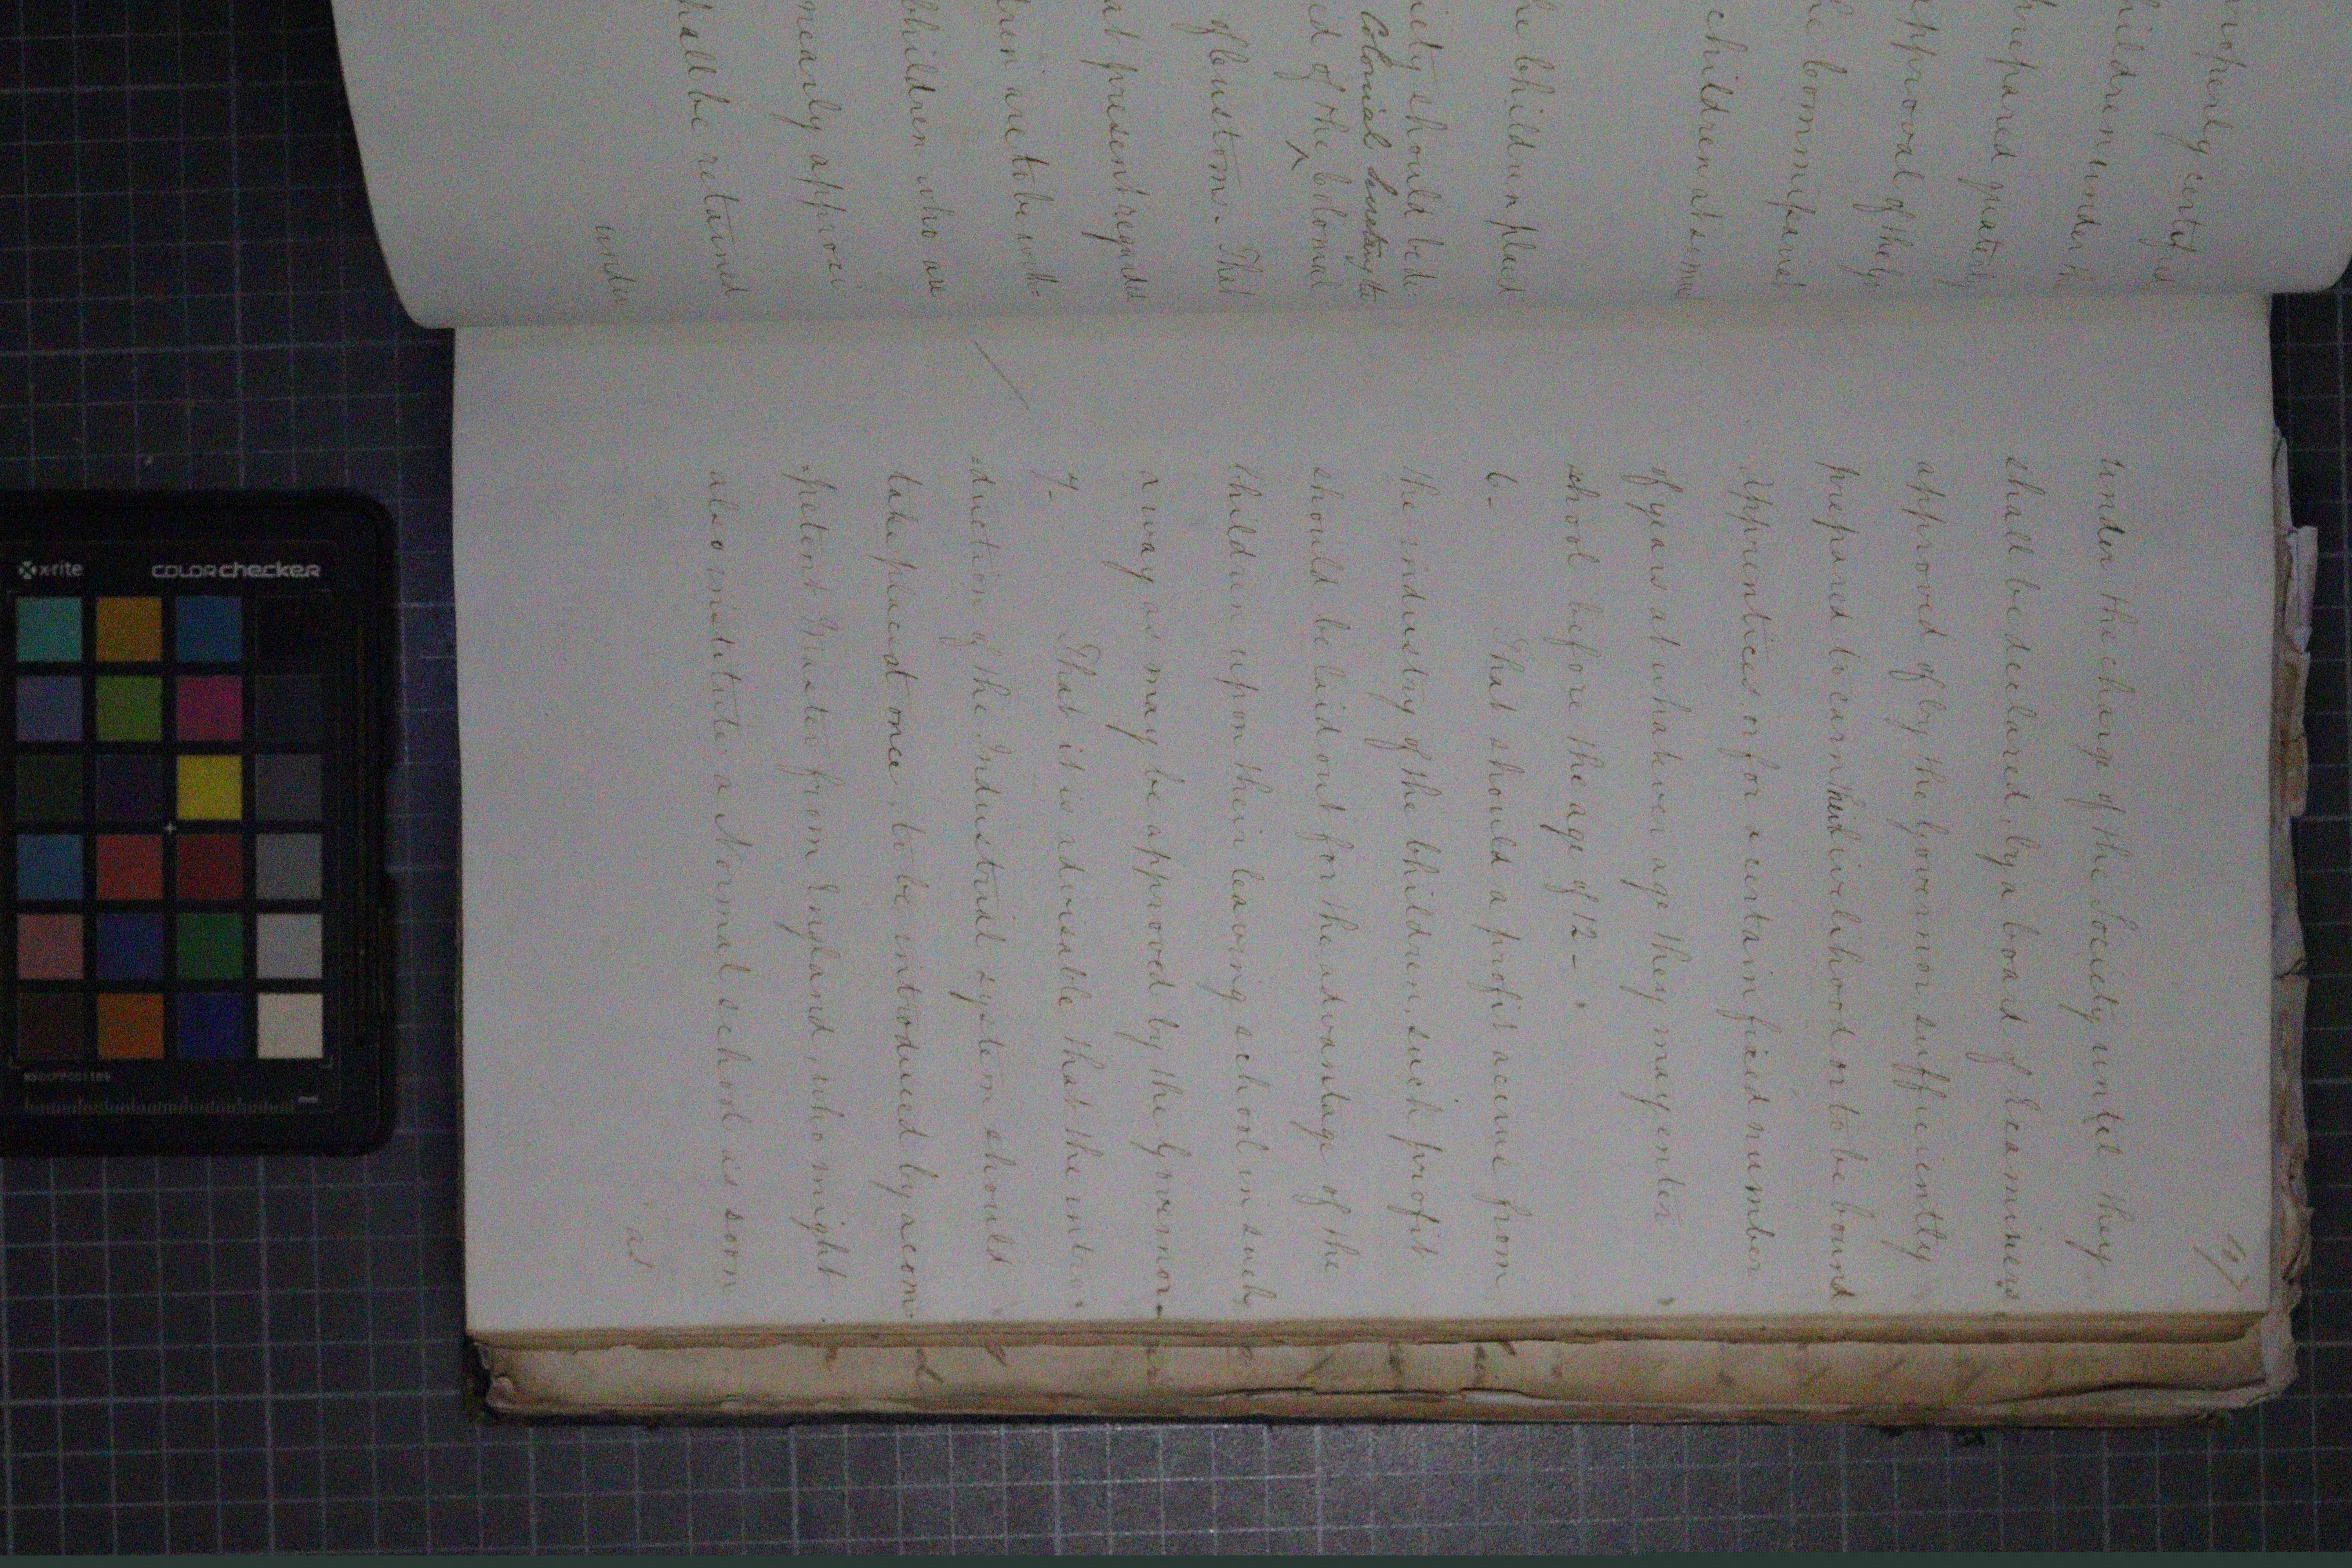 properly certified
hildren under the
prepared quarterly
approval of the
he Commissariat
children at some
he Children placed
iety should be de-
Colonial Secretary to
ed of the Colonial
of Customs. That
at present regarded
dren are to be with-
Children who are
nearly approxi
hall be retained
under
under the charge of the Society until they
shall be declared, by a board of Examiners
approved of by the Governor sufficiently
prepared to earn their livelihood or to be bound
Apprentices or for a certain fixed number
of years at whatever age they may enter
school before the age of 12 -
6- That should a profit accrue from
the industry of the Children, such profit
should be laid out for the advantage of the
Children upon their leaving school in such
a way as may be approved by the Governor-
7- That it is advisable that the intro-
=duction of the Industrial system should
take place at once, to be introduced by a com-
=petent Master from England, who might
also institute a Normal school as soon
as
x-rite
colorchecker